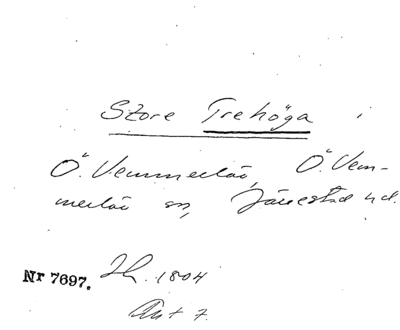 Store Trehöga i
Ö. Vemmerlöv, Ö. Vem-
merlöv sn, Järrestad hd.
Nr 7697. Jh. 1804
Akt 7.